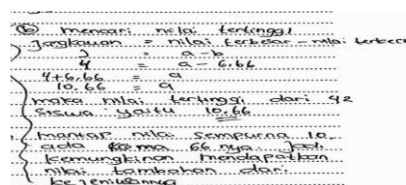 (b) mencari nilai tertinggi
Jangkauan = nilai terbesar - nilai terkecil
J = a - b
4 = a - 6.66
4 + 6.66 = a
10.66 = a
maka nilai tertinggi dari 42
siswa yaitu 10.66
mantap nilai sempurna 10.
ada koma 66 nya. Jadi
kemungkinan mendapatkan
nilai tambahan dari
kejeniusannya